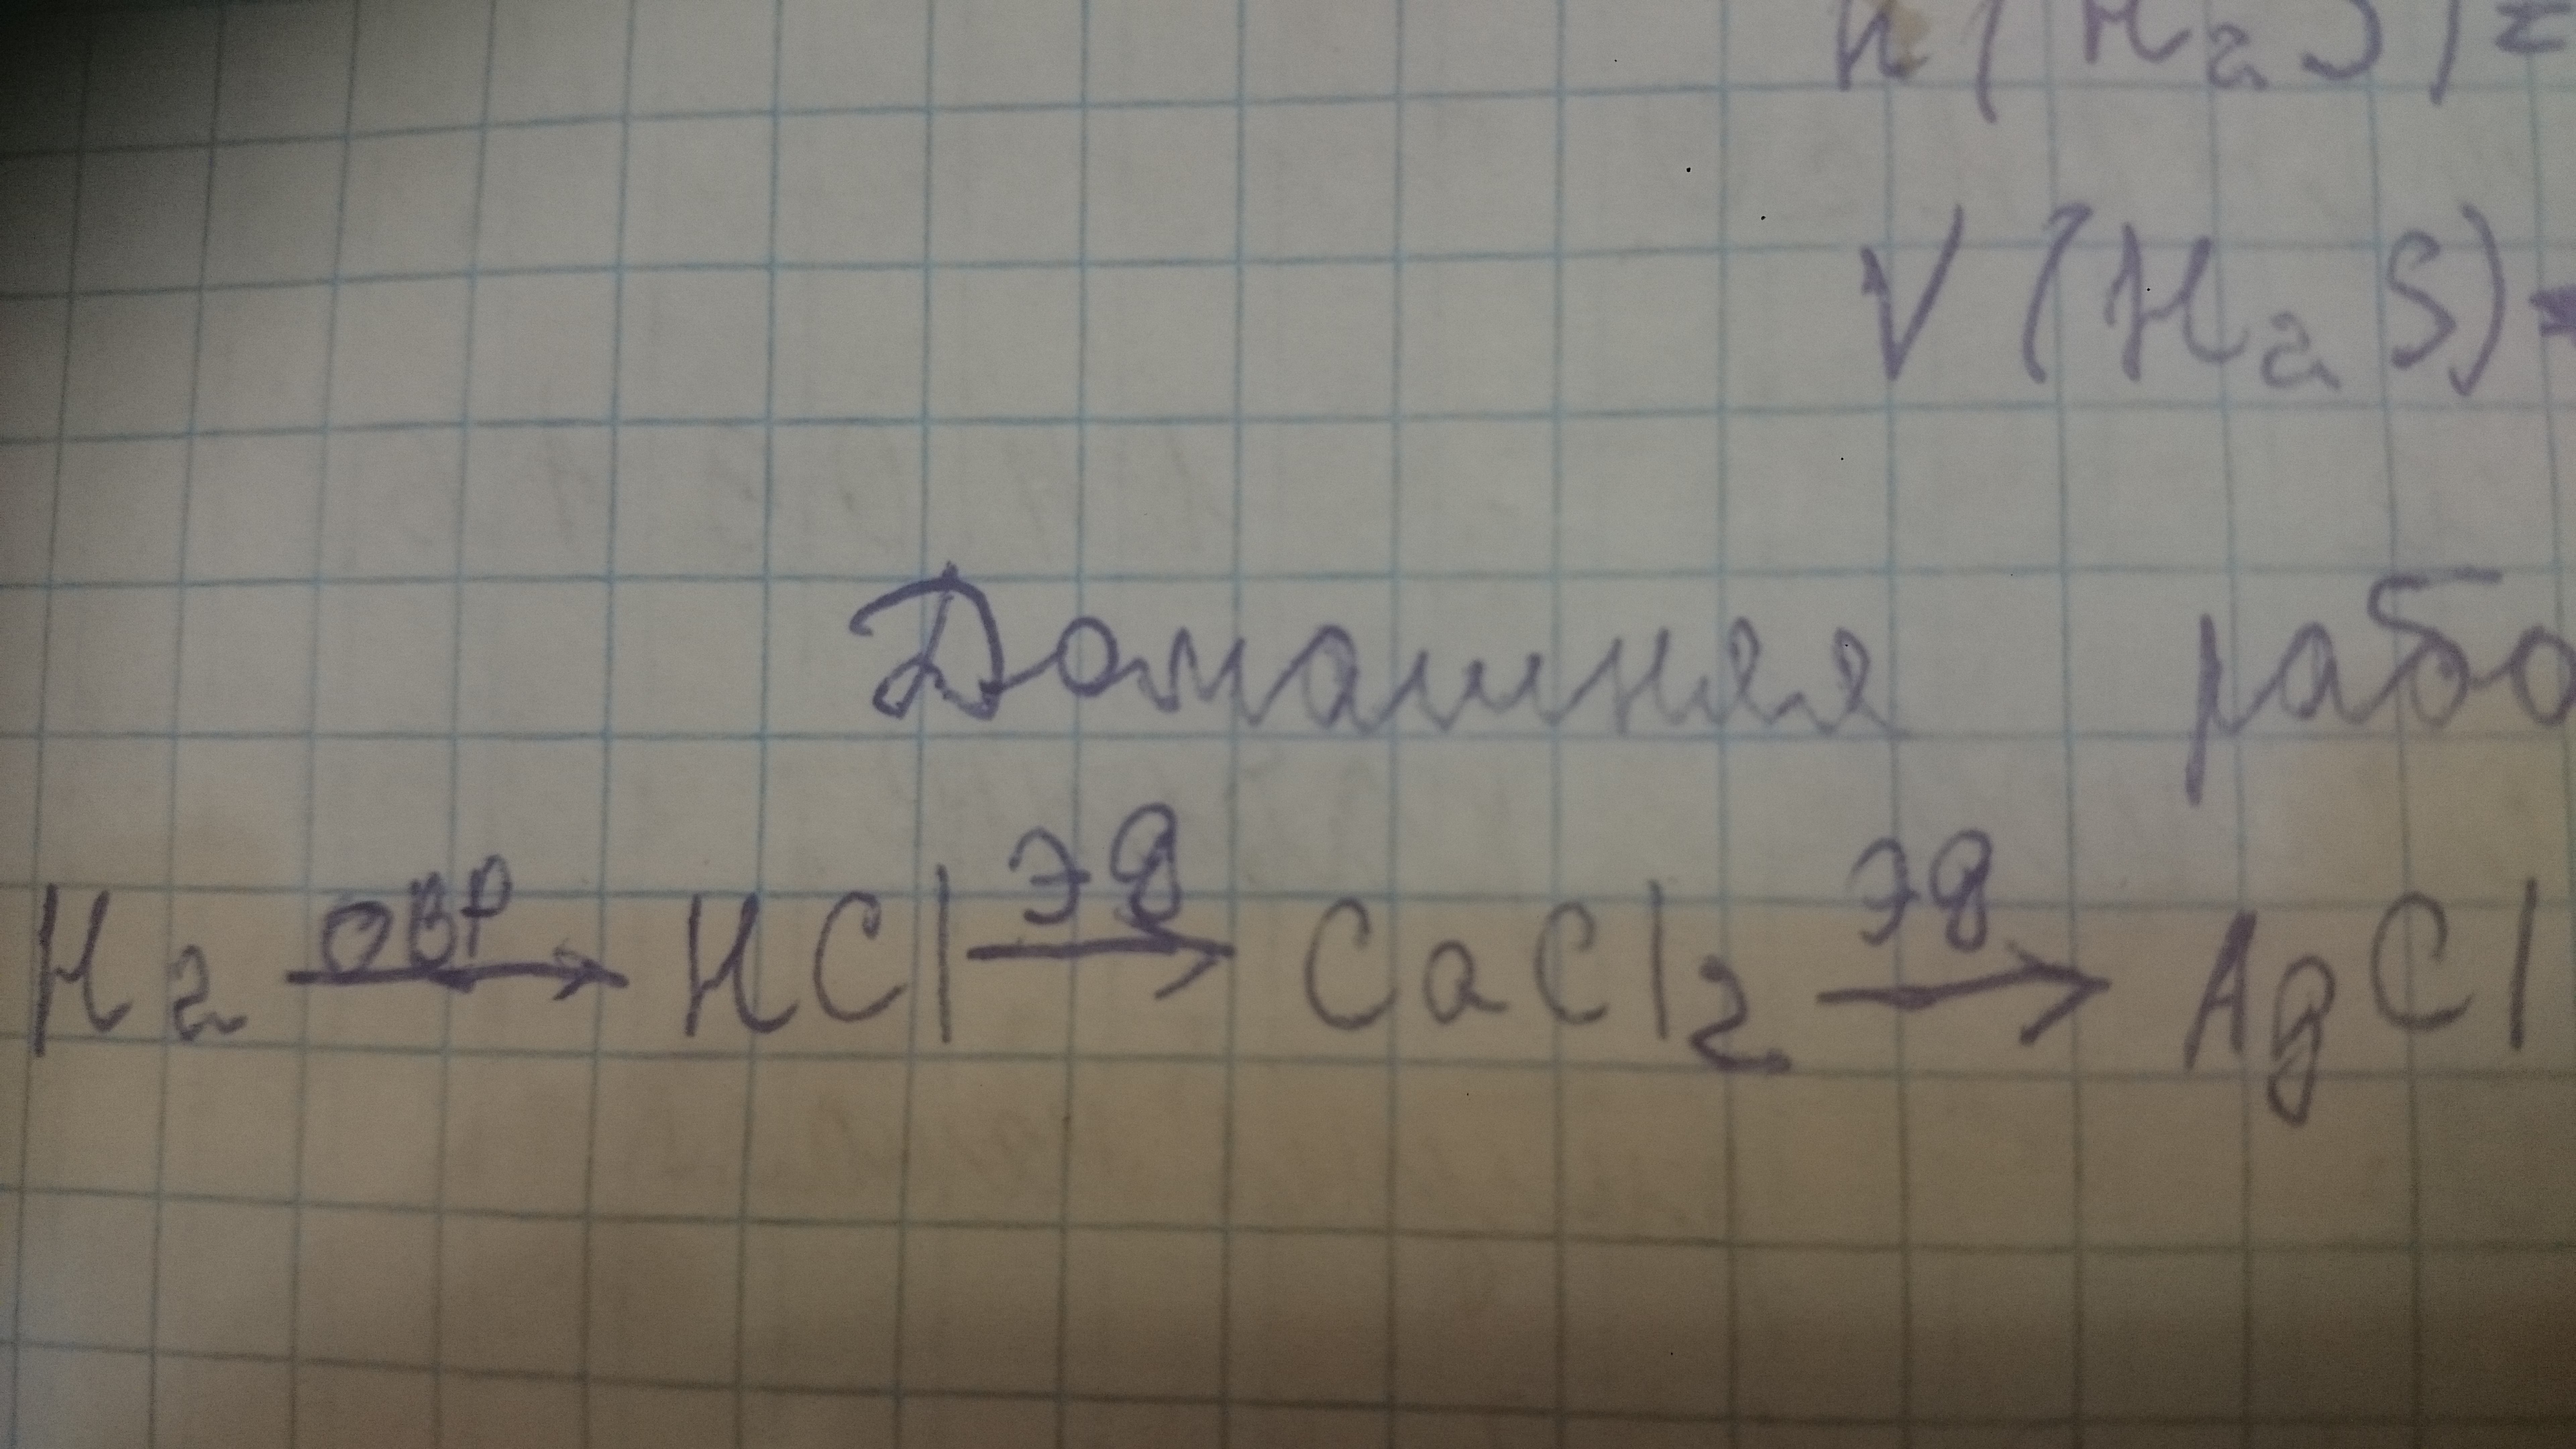 n(H₂S)=
V(H₂S)=
Домашняя рабо
H₂ ОВР→ HCl эд→ CaCl₂ эд→ AgCl